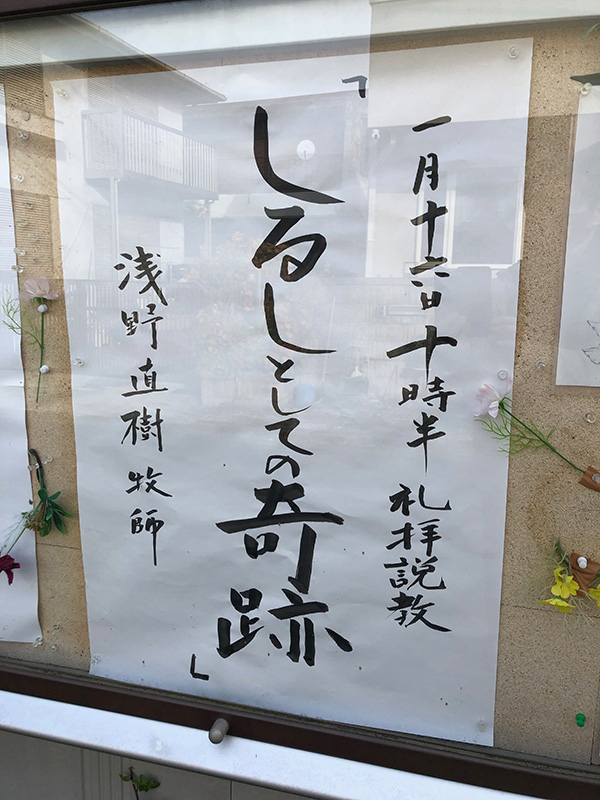 一月十六日十時半 礼拝説教
「しるしとしての奇跡」
浅野直樹牧師